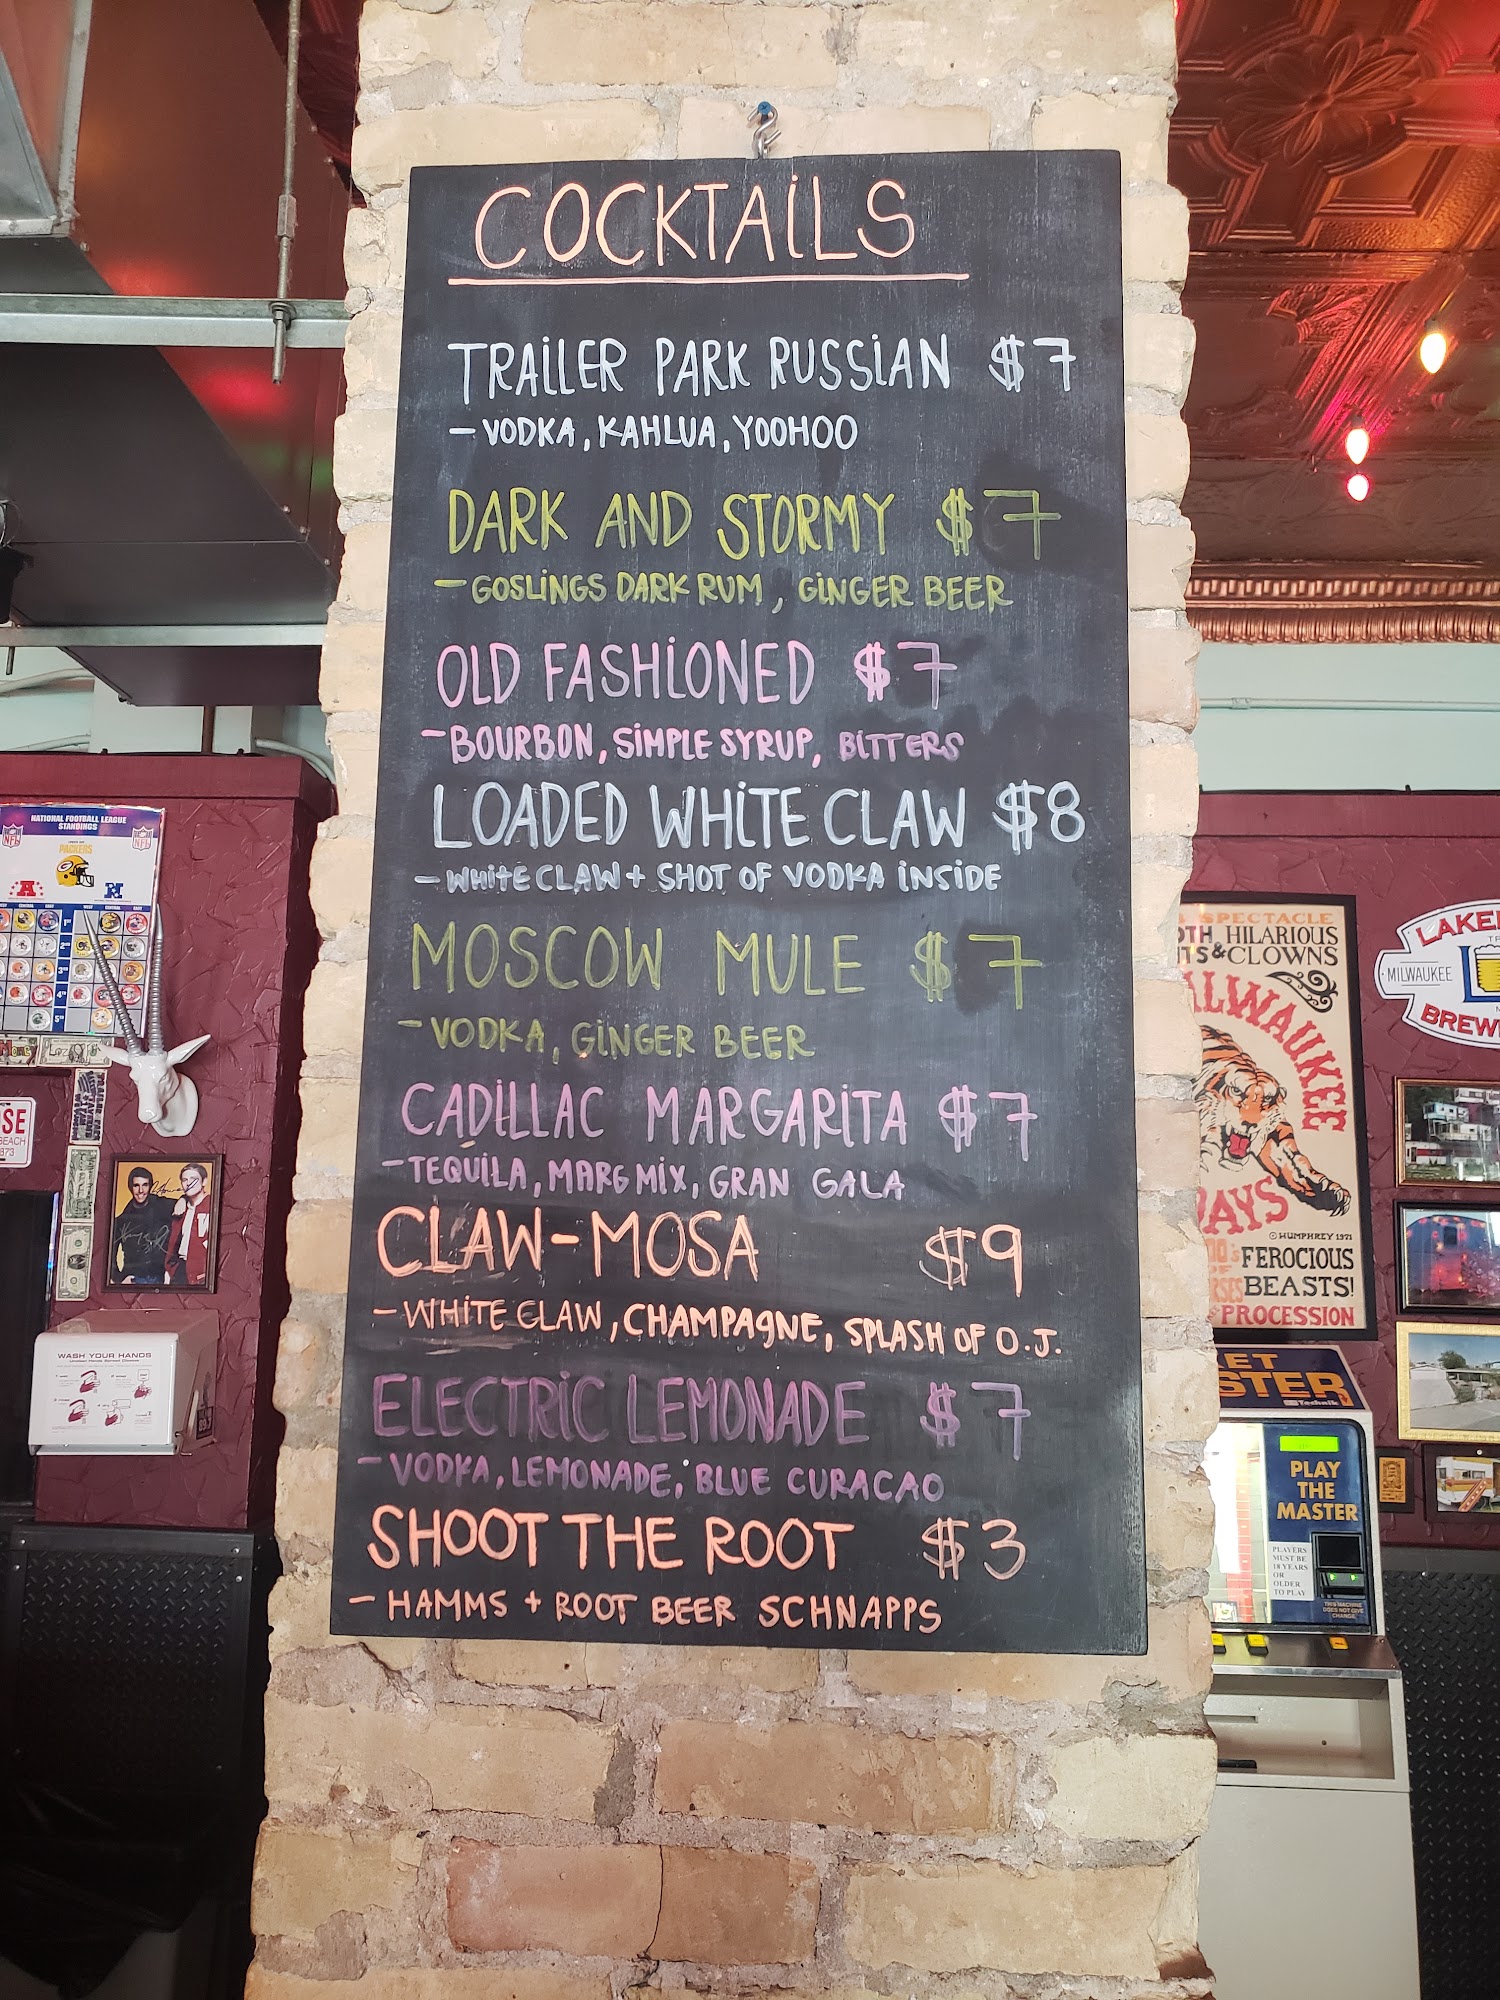 COCKTAILS
TRAILER PARK RUSSIAN $7
- VODKA, KAHLUA, YOOHOO
DARK AND STORMY $7
- GOSLINGS DARK RUM, GINGER BEER
OLD FASHIONED $7
- BOURBON, SIMPLE SYRUP, BITTERS
LOADED WHITE CLAW $8
- WHITE CLAW + SHOT OF VODKA INSIDE
MOSCOW MULE $7
- VODKA, GINGER BEER
CADILLAC MARGARITA $7
- TEQUILA, MARG MIX, GRAN GALA
CLAW-MOSA $9
- WHITE CLAW, CHAMPAGNE, SPLASH OF O.J.
ELECTRIC LEMONADE $7
- VODKA, LEMONADE, BLUE CURACAO
SHOOT THE ROOT $3
- HAMMS + ROOT BEER SCHNAPPS
NATIONAL FOOTBALL LEAGUE
STANDINGS
NFL
NFL
PACKERS
WASH YOUR HANDS
SPECTACLE
HILARIOUS
&CLOWNS
© HUMPHREY 1971
FEROCIOUS
BEASTS!
PROCESSION
MILWAUKEE
PLAY
THE
MASTER
PLAYERS
MUST BE
18 YEARS
OR
OLDER
TO PLAY
THIS MACHINE
DOES NOT GIVE
CHANGE